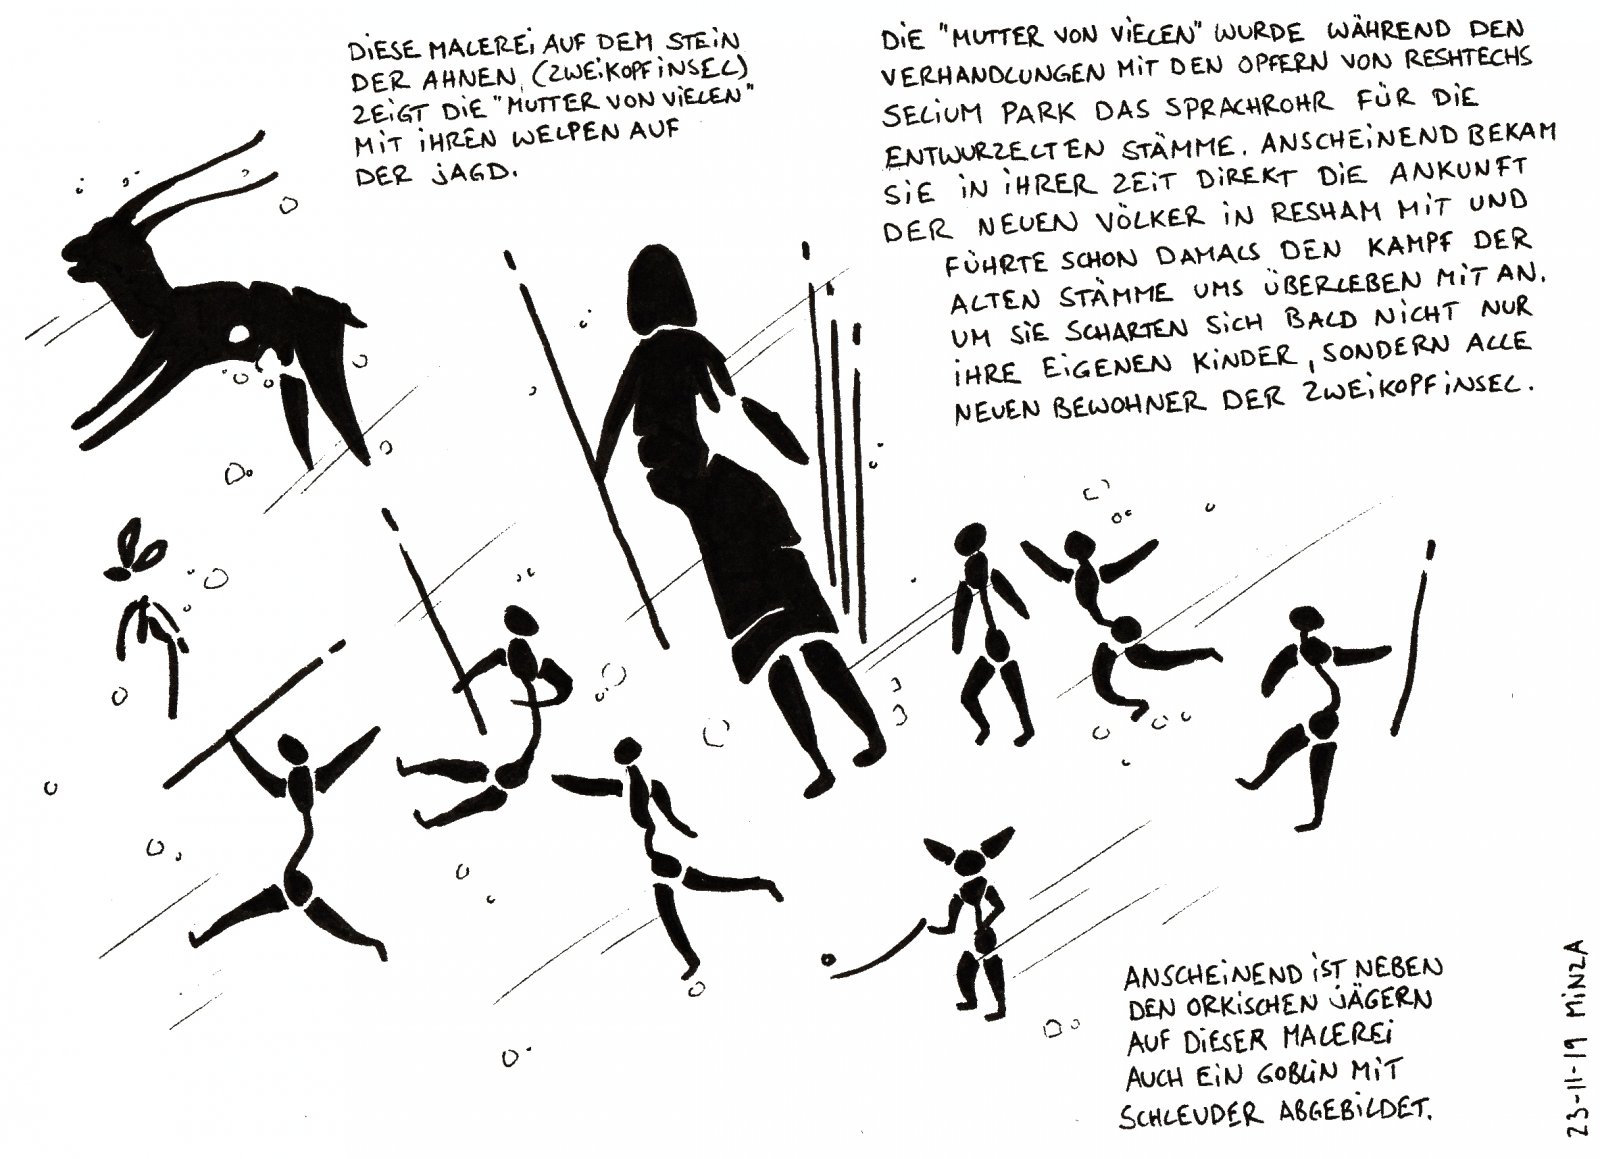 DIESE MALEREI AUF DEM STEIN
DER AHNEN (ZWEIKOPFINSEL)
ZEIGT DIE "MUTTER VON VIELEN"
MIT IHREN WELPEN AUF
DER JAGD.
DIE "MUTTER VON VIELEN" WURDE WÄHREND DEN
VERHANDLUNGEN MIT DEN OPFERN VON RESHTECHS
SELIUM PARK DAS SPRACHROHR FÜR DIE
ENTWURZELTEN STÄMME. ANSCHEINEND BEKAM
SIE IN IHRER ZEIT DIREKT DIE ANKUNFT
DER NEUEN VÖLKER IN RESHAM MIT UND
FÜHRTE SCHON DAMALS DEN KAMPF DER
ALTEN STÄMME UMS ÜBERLEBEN MIT AN.
UM SIE SCHARTEN SICH BALD NICHT NUR
IHRE EIGENEN KINDER, SONDERN ALLE
NEUEN BEWOHNER DER ZWEIKOPFINSEL.
ANSCHEINEND IST NEBEN
DEN ORKISCHEN JÄGERN
AUF DIESER MALEREI
AUCH EIN GOBLIN MIT
SCHLEUDER ABGEBILDET.
23-11-19 MINZA